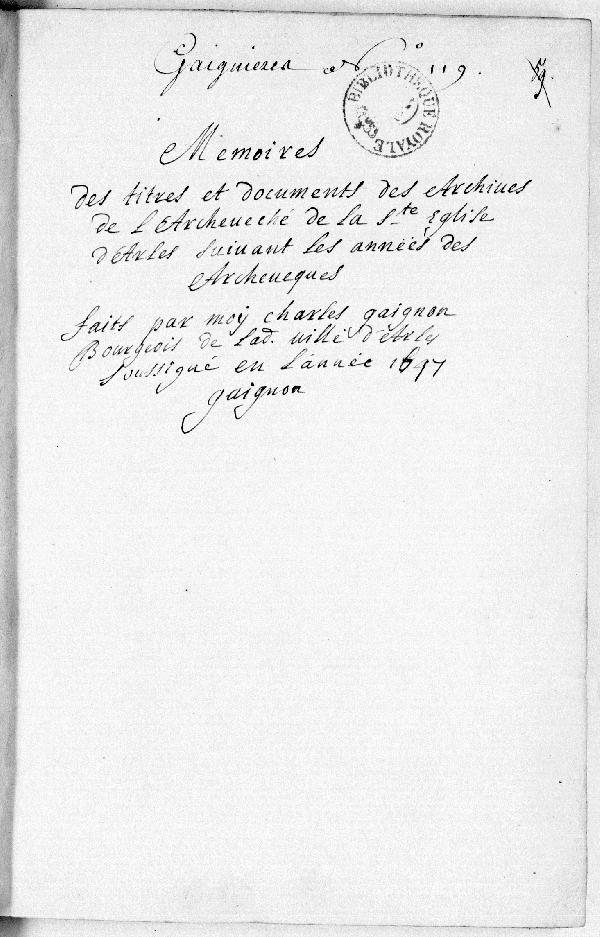 Gaignieres N° 119.
BIBLIOTHEQUE ROYALE
Memoires
des titres et documents des Archives
de L'Archeveché de la Ste Eglise
d'Arles suivant les années des
Archeveques
faits par moy charles gaignon
Bourgeois de Lad. ville d'Arles
soussigné en L'année 1697
gaignon